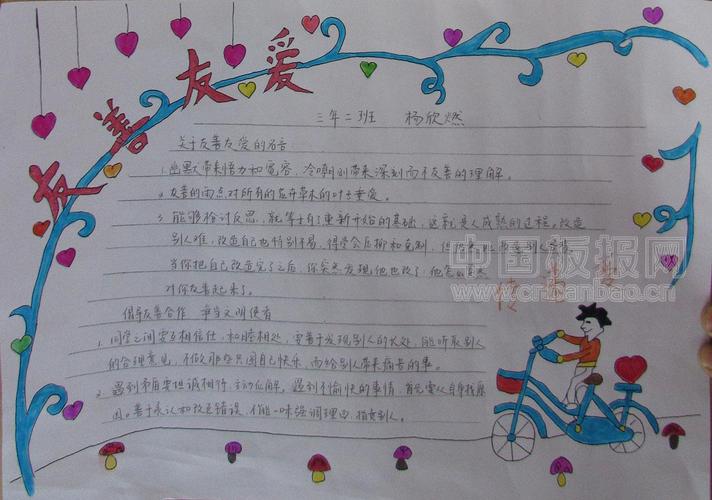 友善友爱
三年二班 杨欣燃
关于友善友爱的名言
1. 幽默带来悟力和宽容，冷嘲则带来深刻而不友善的理解。
2. 友善的雨点对所有的花卉草木的叶片垂爱。
3. 能够检讨反思，就等于有了重新开始的基础，这就是人成熟的过程。改造
别人难，改造自己也特别不易，得学会
当你把自己改造完了之后，你突然发现他也改了，他
对你友善起来了。
倡导友善合作 争当文明使者
1. 同学之间要互相信任，和睦相处，要善于发现别人的长处，能听取别人
的合理意见，不做那些只图自己快乐，而给别人带来痛苦的事。
2. 遇到矛盾要坦诚相待，主动化解。遇到不愉快的事情，首先要从自身找原
因。善于承认和改正错误，不能一味强调理由，指责别人。
中国板报网
www.cnbanbao.cn